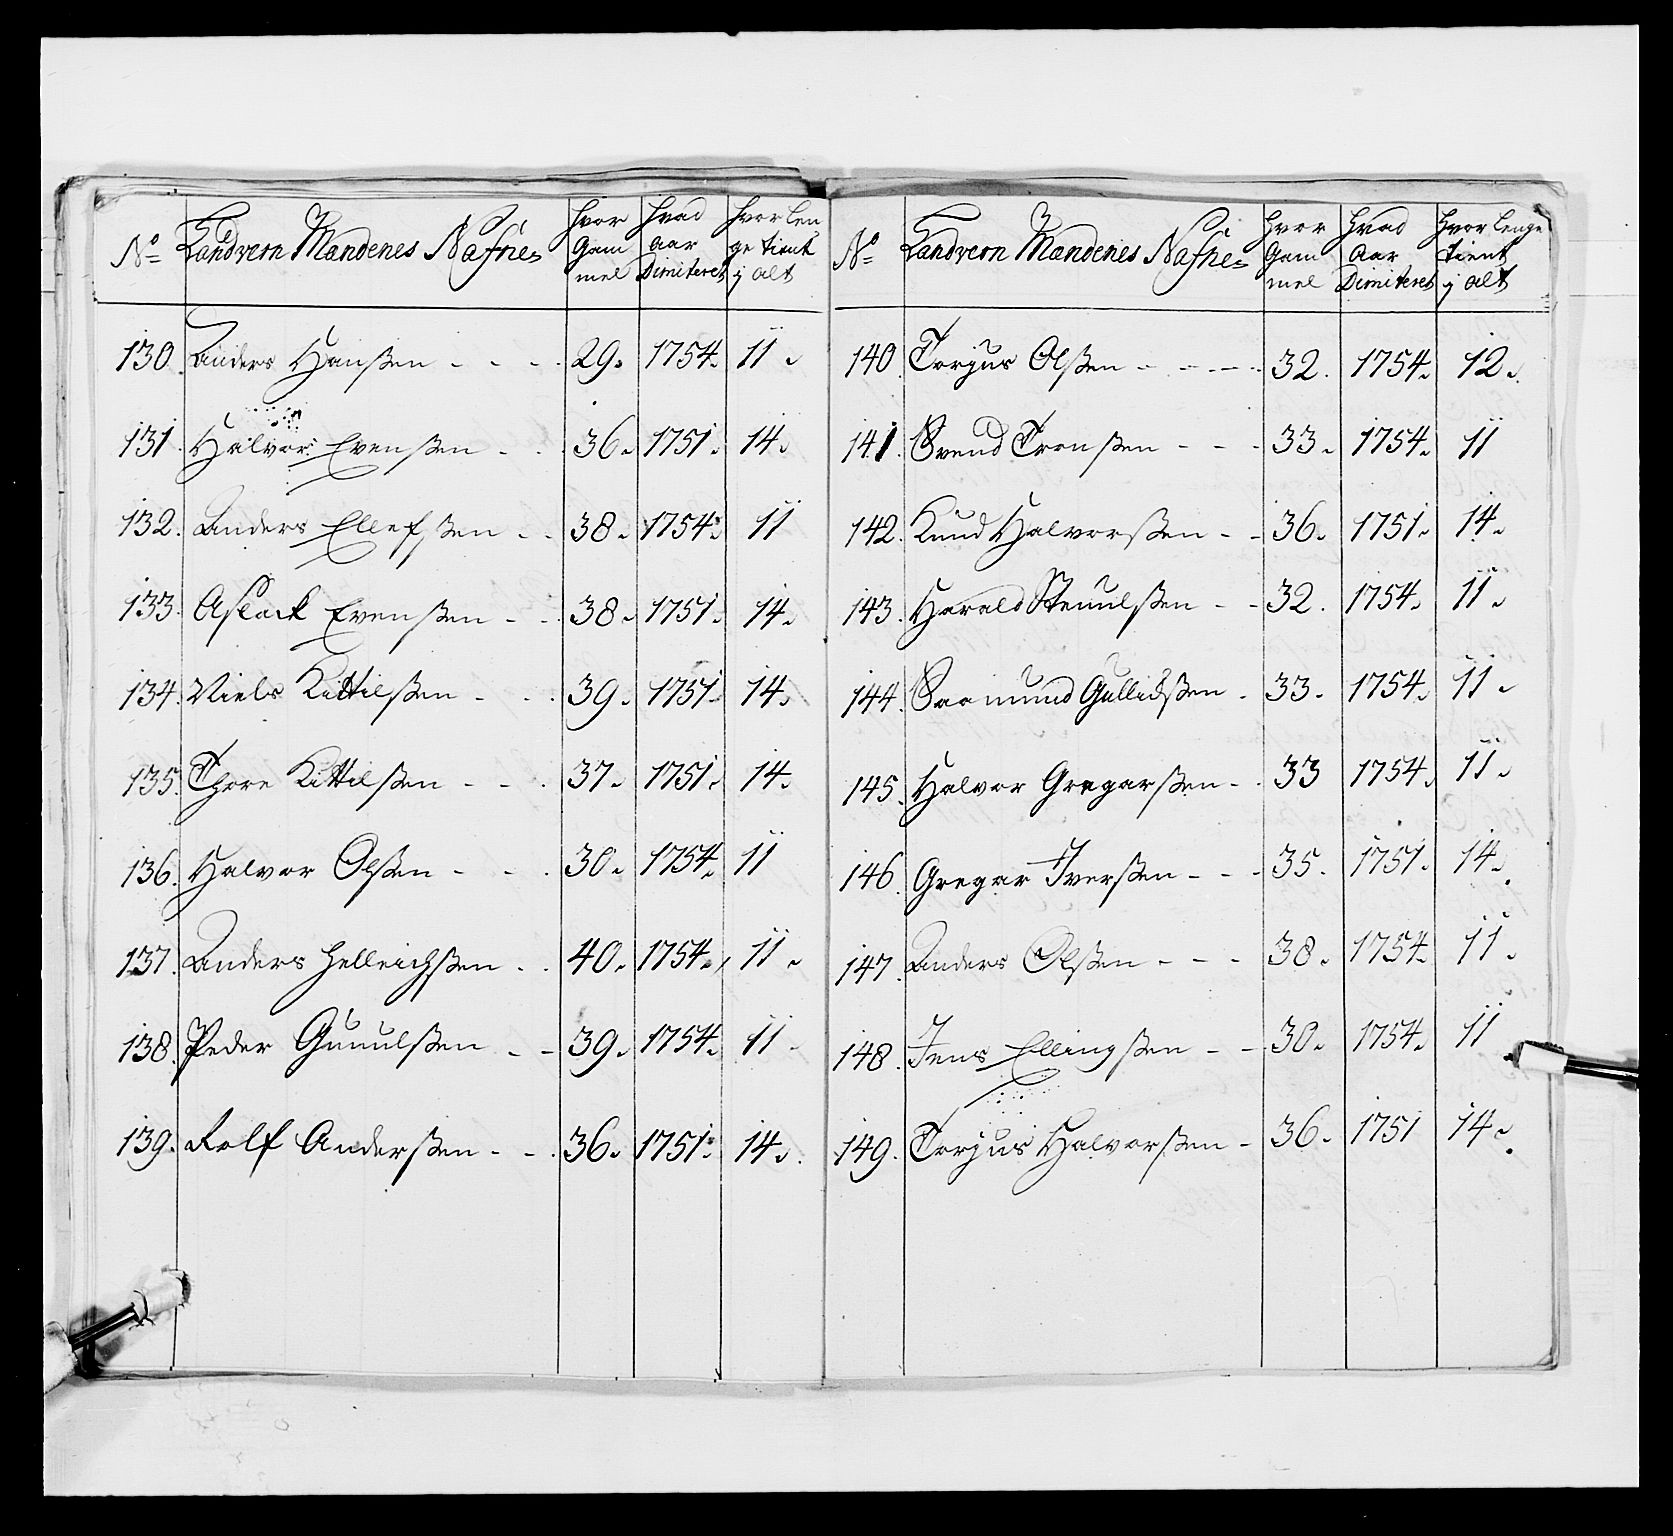 No Landvern Mandenes Nafne
Hvor Gam mel
Hvad Aar Dimiteret
Hvor len ge tient i alt
130. Anders Hansßen - - - 29. 1754. 11.
131. Halvor Evenßen - - 36. 1751. 14.
132. Anders Ellefsßen - - 38. 1754. 11
133. Aslack Evenßen - - 38. 1751. 14.
134. Niels Kittilßen - - 39. 1751. 14.
135. Thore Kittilßen - - - 37. 1751. 14.
136. Halvor Olßen - - - 30. 1754. 11
137. Anders Helleichßen - - 40. 1754. 11.
138. Peder Gunulßen - - 39. 1754. 11.
139. Rolf Anderßen - - - 36. 1751. 14.
No Landvern Mandenes Nafne
Hvor Gam mel
Hvad Aar Dimiteret
Hvor lenge tient i alt
140. Torjus Olßen - - - - 32. 1754. 12.
141. Svend Tronßen - - - 33. 1754. 11
142. Knud Halvorßen - - 36. 1751. 14.
143. Harald Stenulßen - - 32. 1754. 11.
144. Saamund Gullichßen - 33. 1754. 11.
145. Halvor Gregarßen - - 33 1754. 11.
146. Gregar Iverßen - - - 35. 1751. 14.
147. Anders Olßen - - - 38. 1754. 11.
148. Jens Ellingßen - - 30. 1754. 11
149. Torjus Halvorßen - 36. 1751 14.